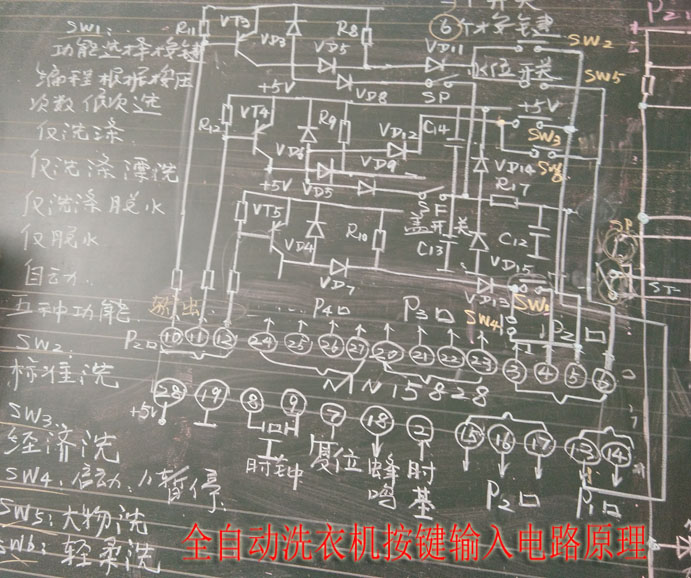 SW1:
功能选择按键
编程根据按压
次数依次选
仅洗涤
仅洗涤漂洗
仅洗涤脱水
仅脱水
自动
五种功能
SW2:
标准洗
SW3:
经济洗
SW4:启动:/暂停
SW5:大物洗
SW6:轻柔洗
个开关
6个按键
水位开关
SW2
SW5
P2口
R11
VT3
VD3
R8
VD5
VD11
VD8
SP
+5V
R12
VT4
VD6
R9
VD12
C14
+5V
SW3
SW6
VD9
VD14
R17
+5V
VD5
盖开关
VT5
VD4
R10
C13
C12
VD7
VD15
VD13
SW1
SW4
SP
ST
输出
P2口
P4口
P3口
P2口
10 11 12 24 25 26 27 20 21 22 23 3 4 5 6
MN15828
28 19 8 9 7 18 2 15 16 17 13 14
+5V
时钟
复位
蜂鸣
时基
P2口
P1口
全自动洗衣机按键输入电路原理